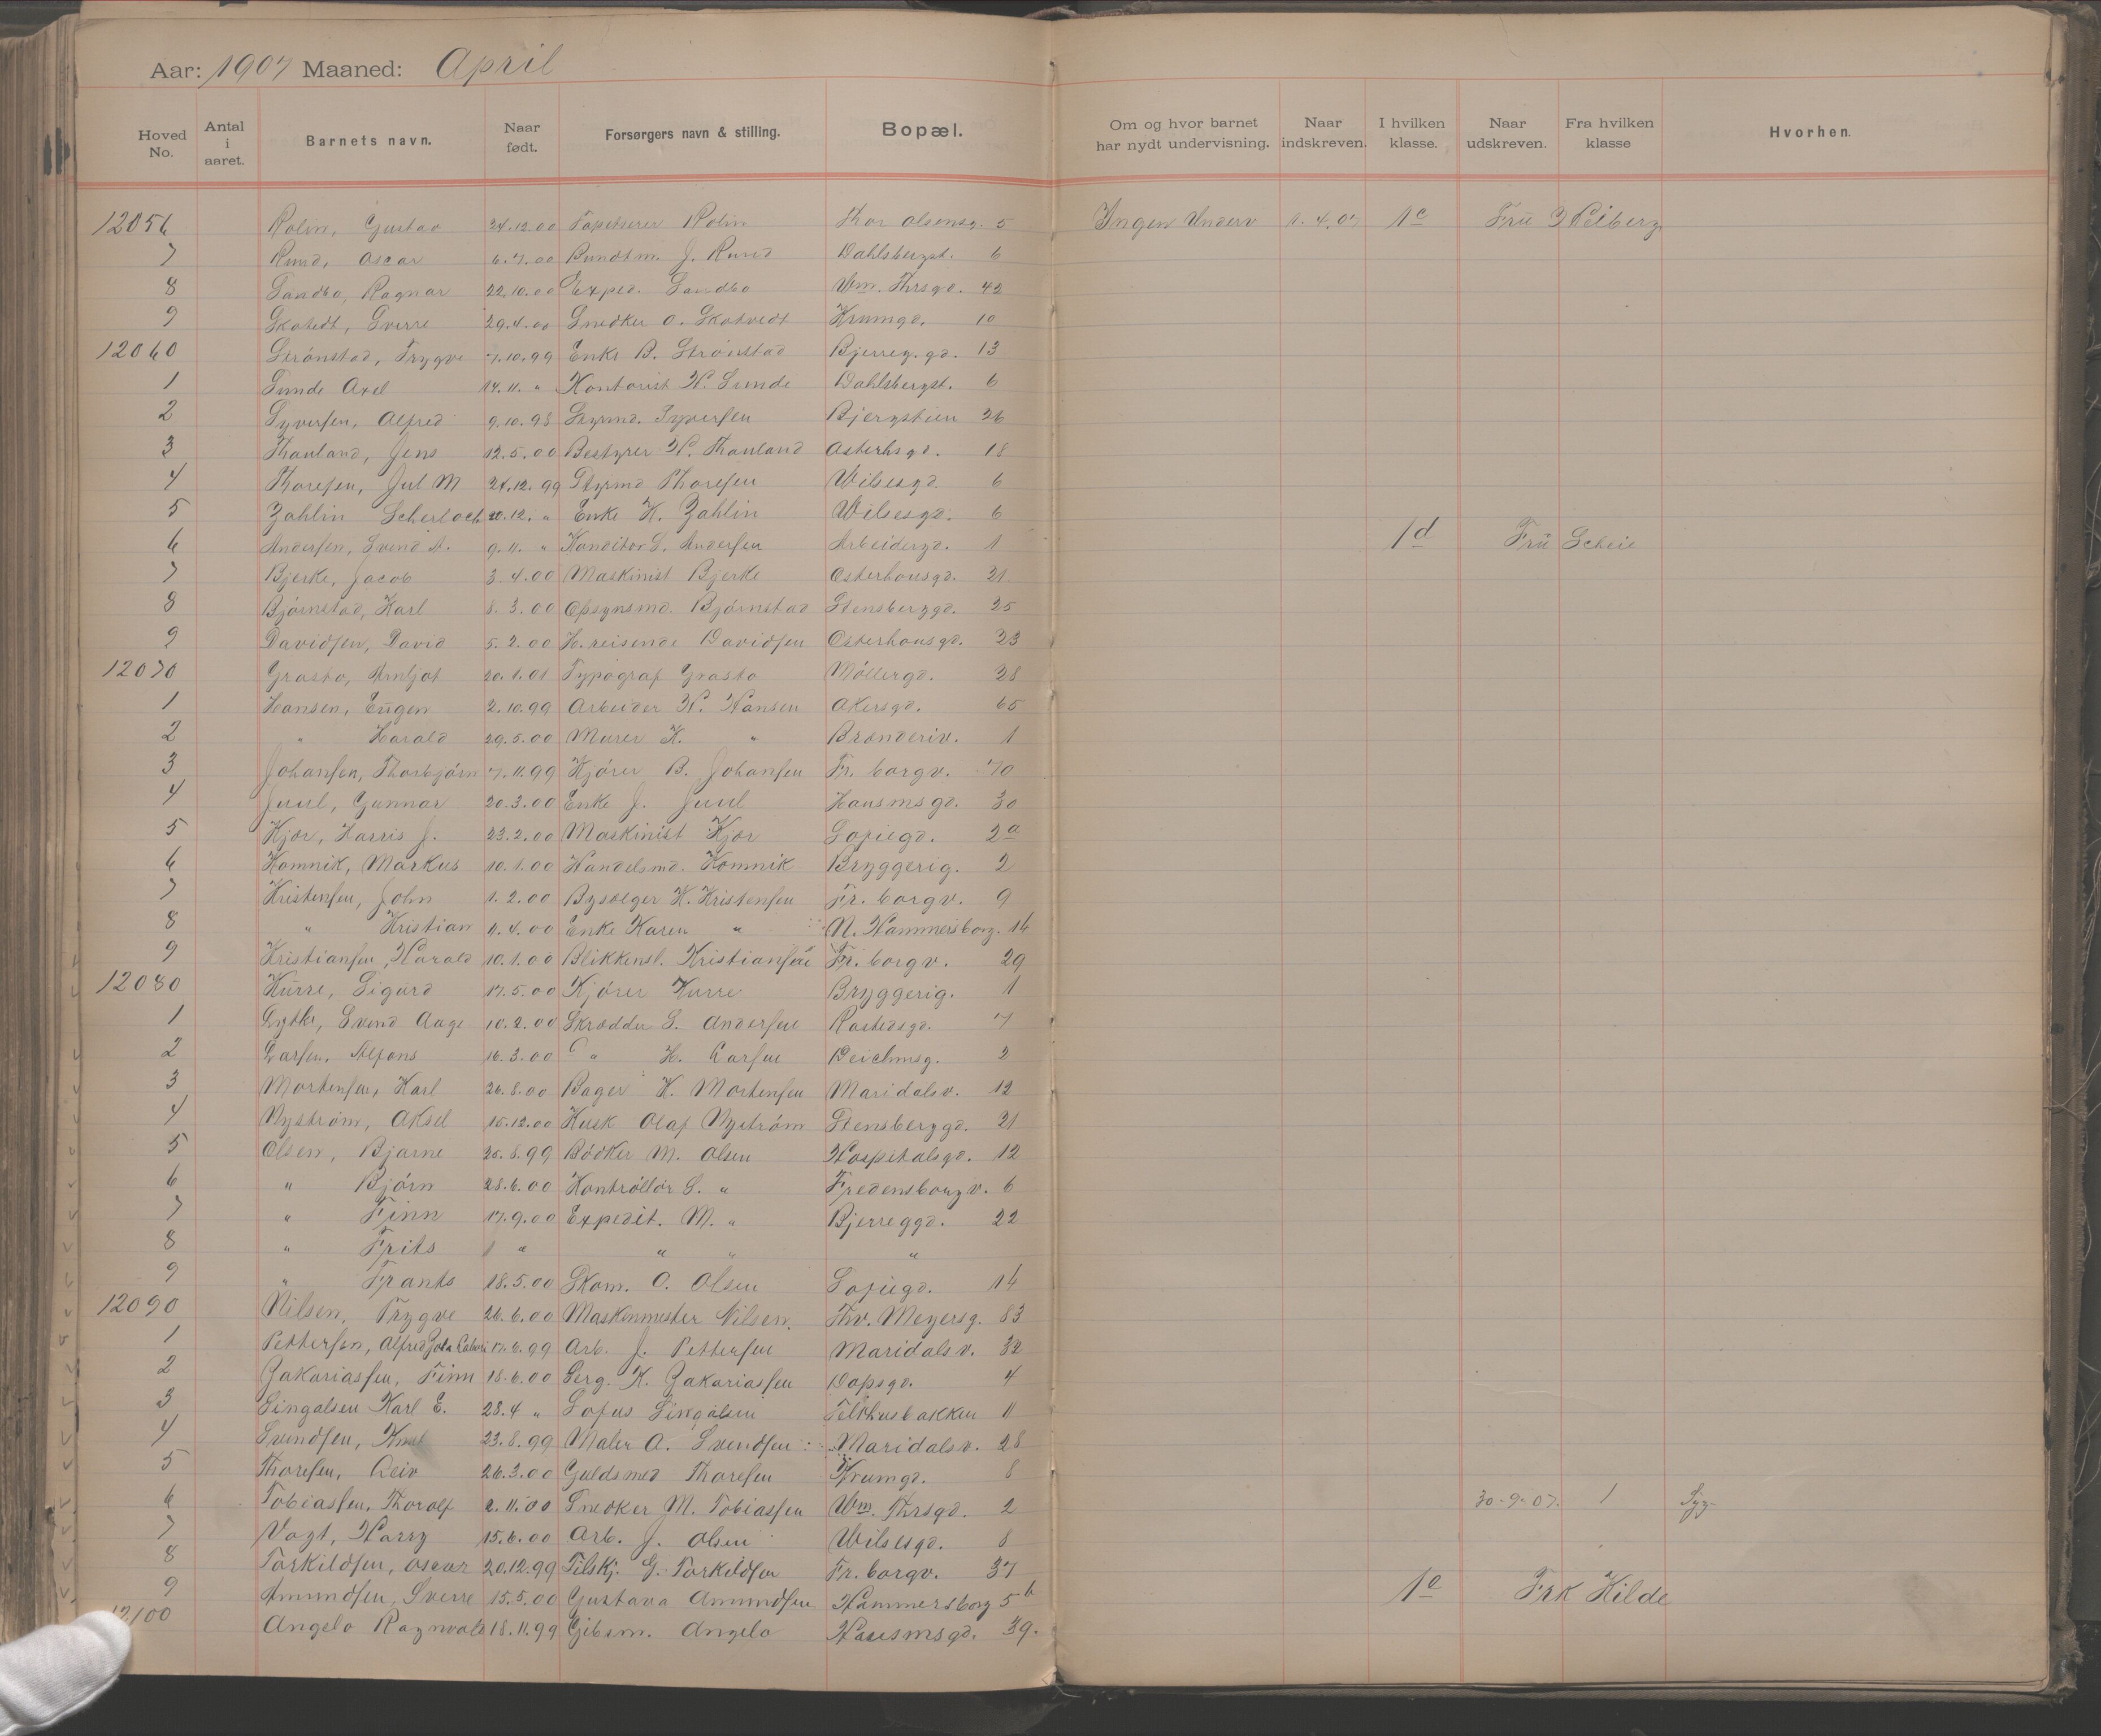 Aar: 1907 Maaned: April
Hoved No. Antal i aaret. Barnets navn. Naar født. Forsørgers navn & stilling. Bopæl. Om og hvor barnet har nydt undervisning. Naar indskreven. I hvilken klasse. Naar udskreven. Fra hvilken klasse Hvorhen.
12056 Rolin, Gustav 24.12.00 Tapetserer Rolin Thor Olsensg. 5 Ingen Underv 1.4.07 1c Frü
7 Rund, Oscar 6.7.00 Bundtm. J. Rund Dahlsbergst. 6
8 Sandbo, Ragnar 22.10.00 Exped. Sandbo Wm. Thrsgd. 42
9 Skotvedt, Sverre 29.4.00 Snedker O. Skotvedt Krumgd. 10
12060 Strönstad, Trygve 7.10.99 Enke B. Strönstad Bjerreg.gd. 13
1 Sunde Axel 14.11. " Kontorist N. Sunde Dahlsbergst. 6
2 Syversen, Alfred 9.10.98 Styrmd. Syversen Bjergstien 26
3 Thauland, Jens 12.5.00 Bestyrer N. Thauland Osterhsgd. 18
4 Thoresen, Jul M 24.12.99 Styrmd Thoresen Wilsesgd. 6
5 Zahlin 20.12. " Enke H. Zahlin Wilsesgd. 6
6 Andersen, Svend A. 9.11. " Konditor S. Andersen Arbeidergd. 1 1d Frü Scheie
7 Bjerke, Jacob 3.4.00 Maskinist Bjerke Osterhausgd. 21
8 Björnstad, Karl 8.3.00 Opsynsmd. Björnstad Stensberggd. 25
9 Davidsen, David 5.2.00 H.reisende Davidsen Osterhausgd. 23
12070 Grasto, Arnljot 20.1.01 Typograf Grasto Möllergd. 28
1 Hansen, Eugen 2.10.99 Arbeider N. Hansen Akersgd. 65
2 " Harald 29.5.00 Murer K. " Brænderiv. 1
3 Johansen, Thorbjörn 7.11.99 Kjörer B. Johansen Fr. borgv. 70
4 Juul, Gunnar 20.3.00 Enke J. Juul Hausmsgd. 30
5 Kjær, Harris J. 23.2.00 Maskinist Kjær Sofiegd. 2a
6 Komnik, Markus 10.1.00 Handelsmd. Komnik Bryggerig. 2
7 Kristensen, John 1.2.00 Bysælger K. Kristensen Fr. borgv. 9
8 " Kristian 11.4.00 Enke Karen " N. Hammersborg. 14
9 Kristiansen, Harald 10.1.00 Blikkensl. Kristiansen Fr. borgv. 29
12080 Kürre, Sigurd 17.5.00 Kjörer Kurre Bryggerig. 1
1 Lytke, Svend Aage 10.2.00 Skrædder S. Andersen Rostedsgd. 7
2 Larsen, Alfons 16.3.00 " H. Larsen Deichmsg. 2
3 Mortensen, Karl 26.8.00 Bager K. Mortensen Maridalsv. 12
4 Nyström, Aksel 15.12.00 Kusk Olaf Nyström Stensberggd. 21
5 Olsen, Bjarne 25.8.99 Bödker M. Olsen Hospitalsgd. 12
6 " Björn 28.6.00 Kontrollör S. " Fredensborgv. 6
7 " Finn 17.9.00 Expedit. M. " Bjerreggd. 22
8 " Frits " " " "
9 " Frants 18.5.00 Skom. O. Olsen Sofiegd. 14
12090 Nilsen, Trygve 26.6.00 Maskinmester Nilsen. Thv. Meyersg. 83
1 Pettersen, Alfred 17.6.99 Arb. J. Pettersen Maridalsv. 32
2 Zakariassen, Finn 18.6.00 Serg. K. Zakariassen Dopsgd. 4
3 Singalsen Karl E. 28.4 " Sofus Singalsen Telthusbakken 11
4 Svendsen, 23.8.99 Maler A. Svendsen Maridalsv. 28
5 Thoresen, Leiv 26.3.00 Guldsmed Thoresen Krumgd. 8
6 Tobiassen, Thoralf 2.11.00 Snedker M. Tobiassen Wm. Thrsgd. 2 30-9-07. 1 Syg.
7 Vogt, Harry 15.6.00 Arb. J. Olsen Wilsesgd. 8
8 Torkildsen, Oscar 20.12.99 Tilskj. G. Torkildsen Fr. borgv. 37
9 Amundsen, Sverre 15.5.00 Gustava Amundsen Hammersborg 5b 1e Frk Hilde
12100 Angelo Ragnvald 18.11.99 Gibsm. Angelo Hausmsgd. 39.